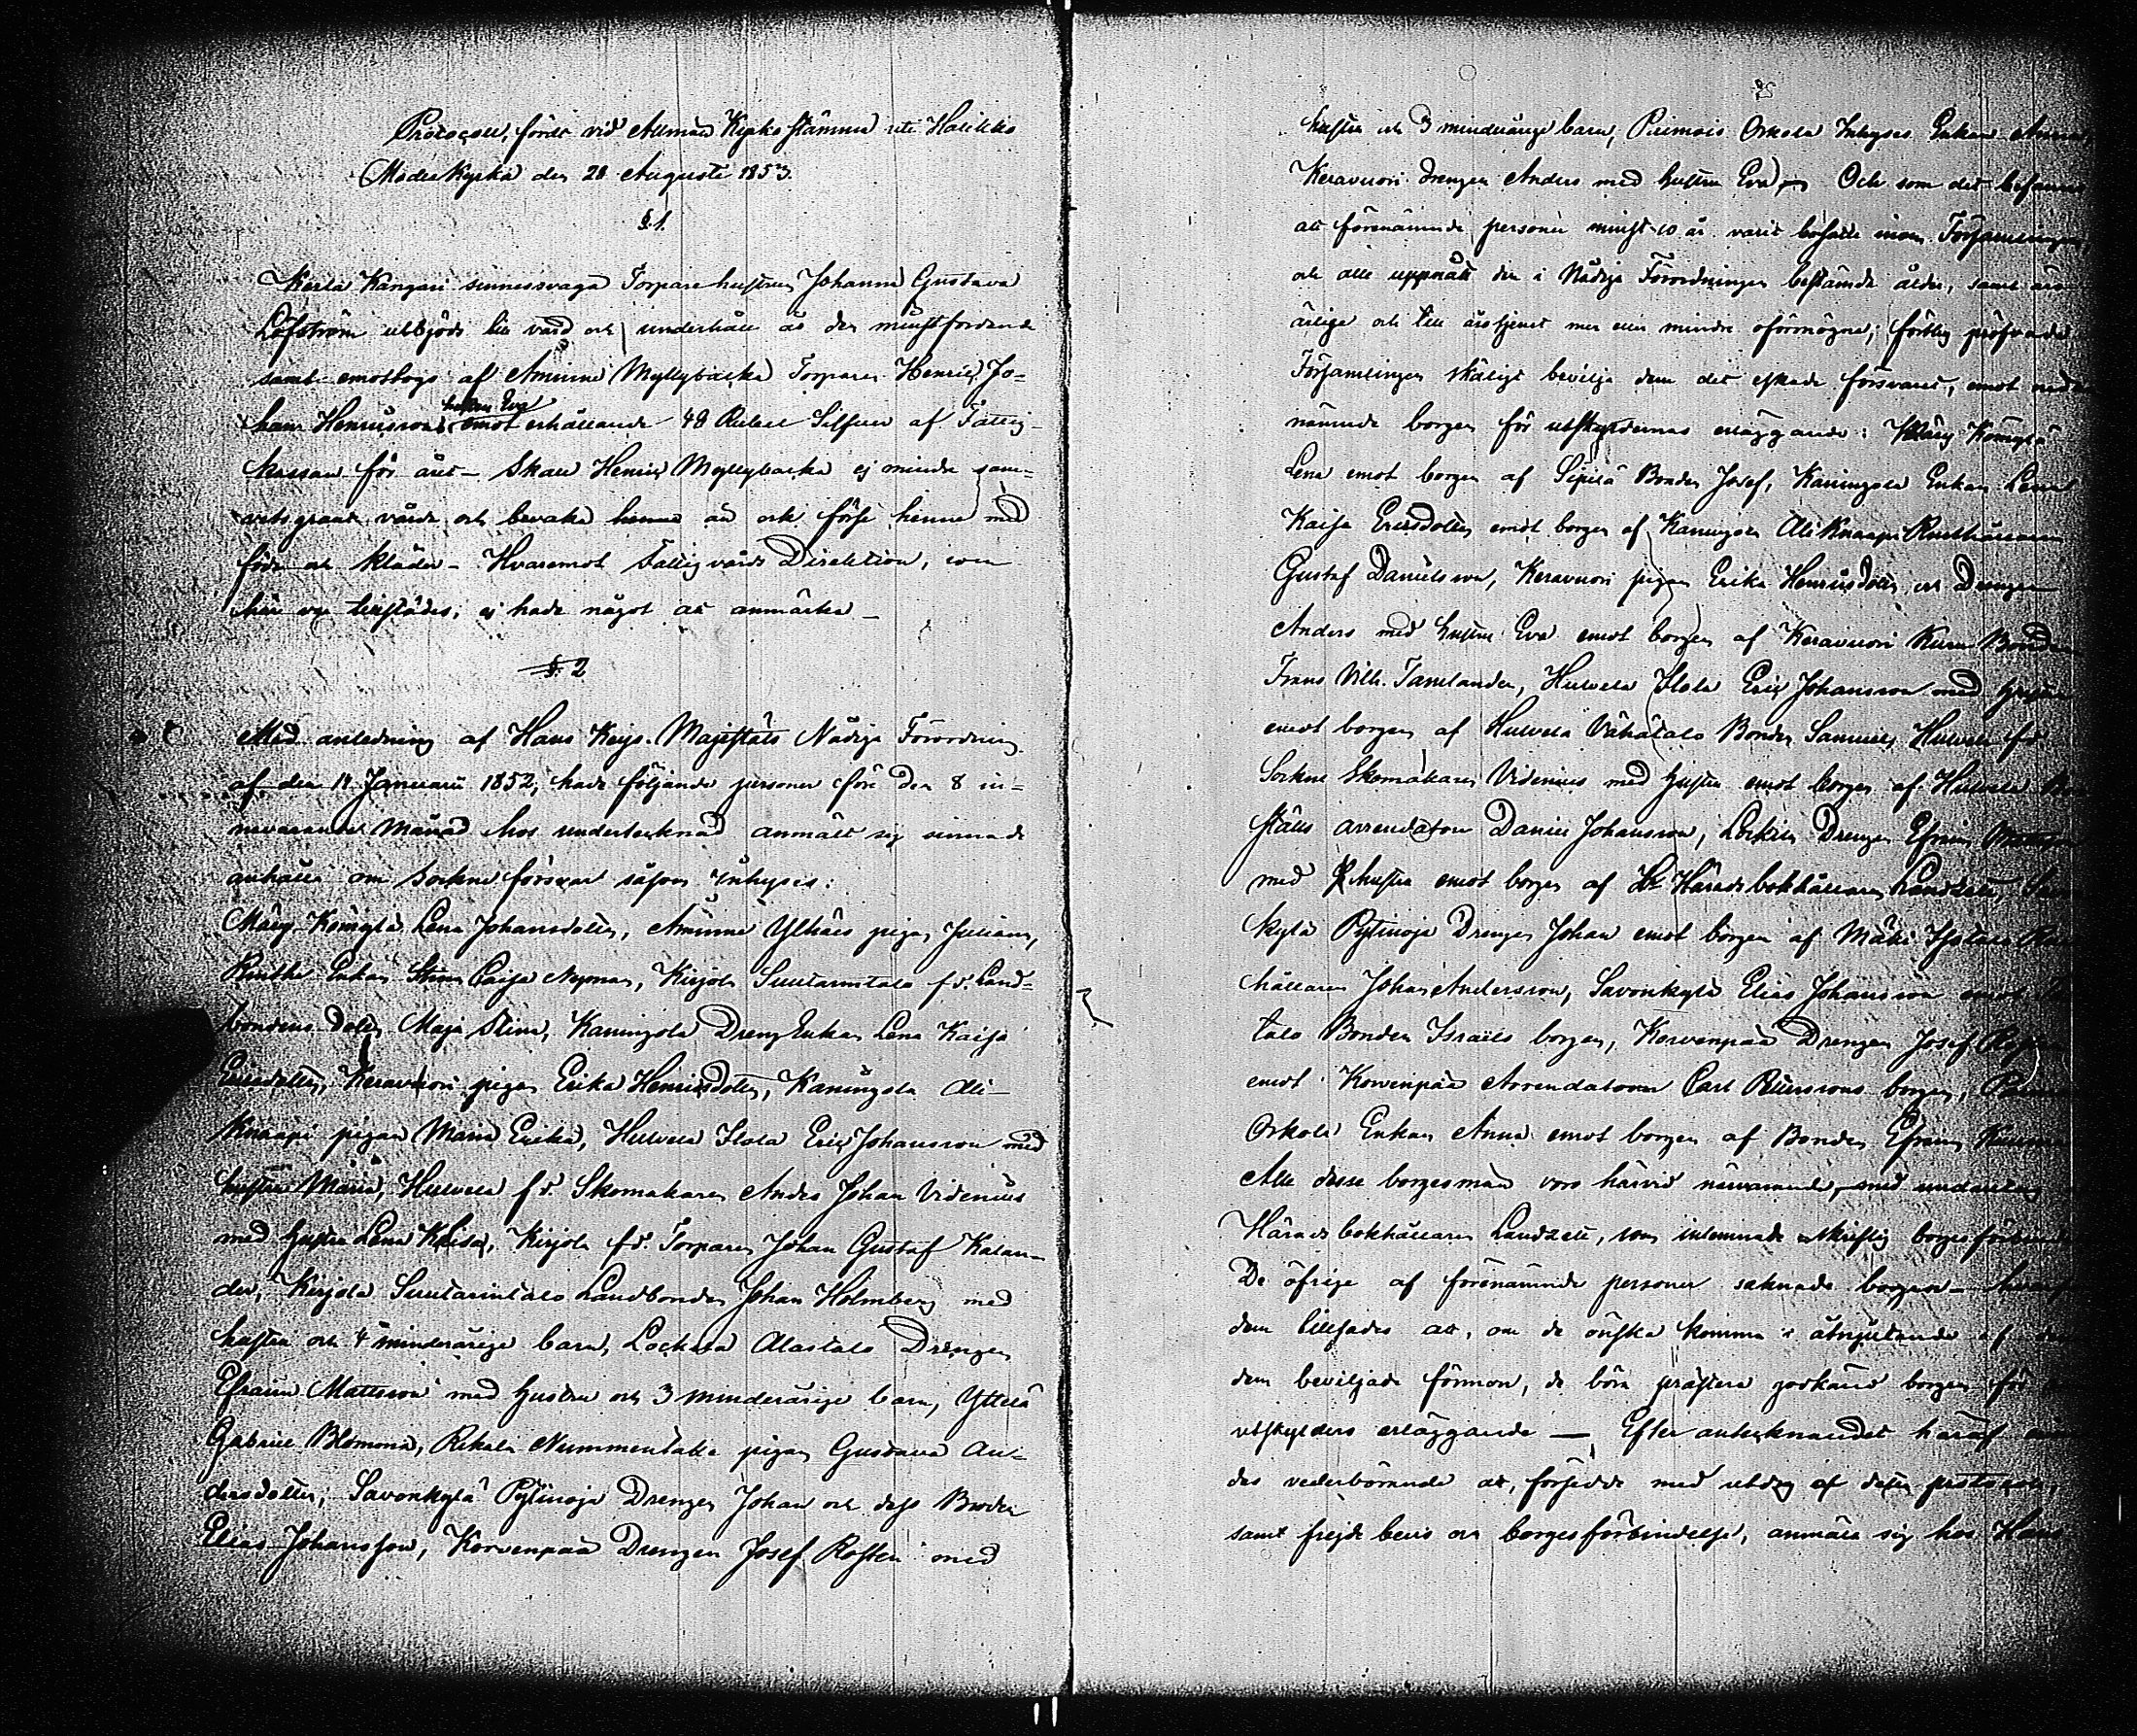 Protocoll, fördt vid Allmän Kyrko stämma uti Halikko
Moderkyrka den 28 Augusti 1853.
§.1.
Kerla Kangari sinnessvaga Torpare hustrun Johanna Gustava
Löfström utbjöds till vård och underhåll åt den minstfordrande
samt emottogs af Åminne Myllybacka Torparen Henric Jo-
han Henricsons hustru Eva emot erhållande 48 Rubel Silfver af Fattig-
kassan för året – Skall Henric Myllybacka ej mindre sam-
vetsgrant vårda och bevaka henne än ock förse henne med
föda och kläder – Hvaremot Fattigvårds Direktion, som
här var tillstädes, ej hade något att anmärka –
§. 2
Med anledning af Hans Keijs. Majestäts Nådiga Förordning
af den Januarii 1852, hade följande personer före den 8 in-
nevarande Månad hos undertecknad anmält sig sinnade
anhålla om sockne försvar såsom inhyses:
Märy Könylä Lena Johansdotter, Åminne Ylhäis pigan Juliana,
Enkan Stina Caisa Nyman, Kirjola Suutarintalo f.d. Land-
bondens dotter Maja Stina, Kaningola Dreng Enkan Lena Kaisa
Ericsdotter, Keravuori pigan Erika Henricsdotter, Kaningola Ali-
Knaapi pigan Maria Erika, Hulvela Ilola Eric Johansson med
hustru Maria, Hulvela f.d. Skomakaren Anders Johan Videnius
med hustru Lena Kaisa, Kirjola f.d. Torparen Johan Gustaf Kalan-
der, Kirjola Suutarintalo Landbonden Johan Holmberg med
hustru och 4 minderårige barn, Alastalo Drengen
Efraim Mattsson med hustru och 3 minderårige barn, Yttelä
Gabriel Blomona, Rikala Nummentaka pigan Gustava An-
dersdotter, Savonkylä Pytinoja Drengen Johan och dess Broder
Elias Johansson, Korvenpää Drengen Josef med
hustru och 3 minderårige barn, Puimois Orkola Inhyses Enkan Anna,
Keravuori drengen Anders med hustru Eva – Och som det befanns
att förenämnde personer minst 10 år varit bosatte inom Församlingen,
och alle uppnått den i Nådiga Förordningen bestämde ålder, samt äro
ärlige och till årstjenst mer eller mindre oförmögna; förthy pröfvade
Församlingen skäligt bevilja dem det äskade försvaret, emot
nämnde borgen för utskyldernas erläggande: Märy Könylä
Lena emot borgen af Sipilä Bonden Josef, Kaningola Enkan Lena
Kaisa Ericsdotter emot borgen af Kaningola Ali Knaapi Rusthållaren
Gustaf Danielsson, Keravuori pigan Erika Henricsdotter och Drengen
Anders med hustru Eva emot borgen af Keravuori Bonden
Frans Vilh. Tamlander, Hulvela Ilola Eric Johansson med hustru
emot borgen af Hulvela Vähätalo Bonden Samuel, Hulvela f.d.
Sockne Skomakaren Videnius med hustru emot borgen af Hulvela
ställs arrendatorn Daniel Johansson, Drengen Efraim
med hustru emot borgen af Hr Häradsbokhållaren
kylä Pytinoja Drengen Johan emot borgen af Mäki
hållaren Johan Andersson, Savonkylä Elias Johansson emot
talo Bonden Israels borgen, Korvenpää Drengen Josef
emot Korvenpää Arrendatorn Carl borgen,
Orkola Enkan Anna emot borgen af Bonden Efraim
Alle desse borgesmän voro härvid närvarande, med undantag
Häradsbokhållaren, som inlemnade skriftlig borgesförbindelse
De öfrige af förenämnde personer saknade borgen –
dem tillsades att, om de önska komma i åtnjutande af
dem beviljade förmon, de böra prestera godkänd borgen för
utskylders erläggande — Efter antecknandet häraf
des vederbörande att, försedde med utdrag af detta protokoll,
samt frejde bevis och borgesförbindelse, anmäla sig hos Hans